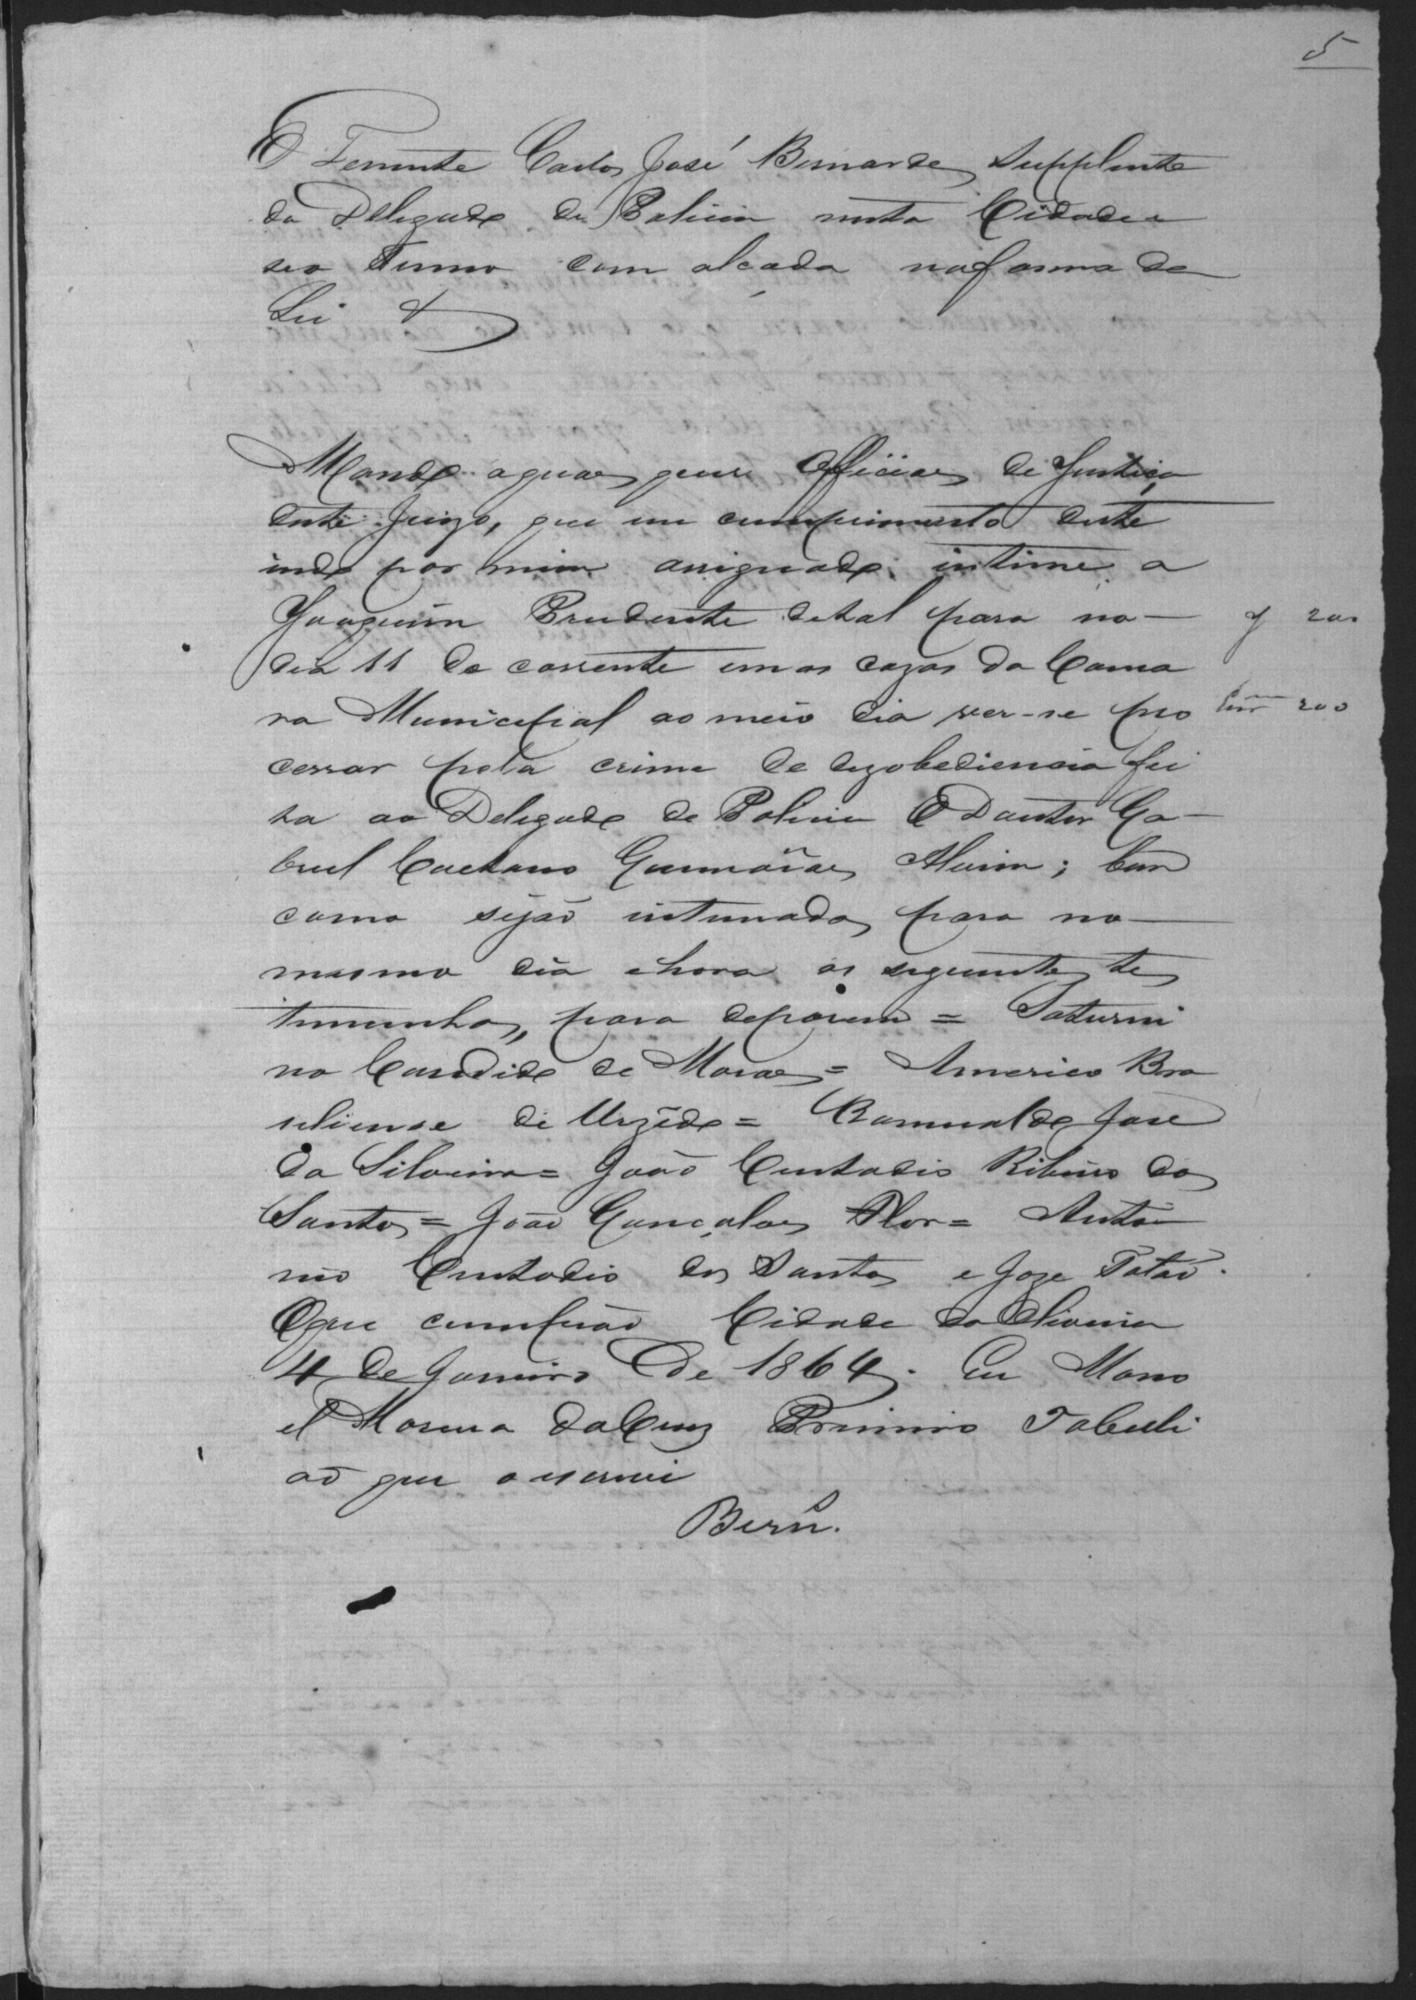 5
O Tenente Carlos José Bernardes Supplente
do Delegado de Policia nesta Cidade e
seo Termo com alçada na forma da
Lei &
Mando aquaes quer Officiaes de Justiça
deste Juizo, que em cumprimento deste
indo por mim assignado, intime a
Joaquim Prudente de tal para no
dia 11 do corrente em as cazas da Cama
J 200
ra Municipal ao meio dia ver-se pro
200
cessar pelo crime de dezobediencia fei
ta ao Delegado de Policia O Doutor Ga-
briel Caetano Guimarães Alvim; bem
como sejão intimados para no
mesmo dia e hora as seguintes tes
temunhas, para deporem = Saturni
no Candido de Moraes = Americo Bra
siliense de Urzedo = Romualdo José
da Silveira = João Custodio Ribeiro dos
Santos = João Gonçalves Flor = Anto
nio Custodio dos Santos e Joze Tatão.
O que cumprão Cidade da Oliveira
4 de Janeiro de 1864. Eu Mano
el Moreira da Cruz Primeiro Tabelli
ao que o escrevi
Bern.